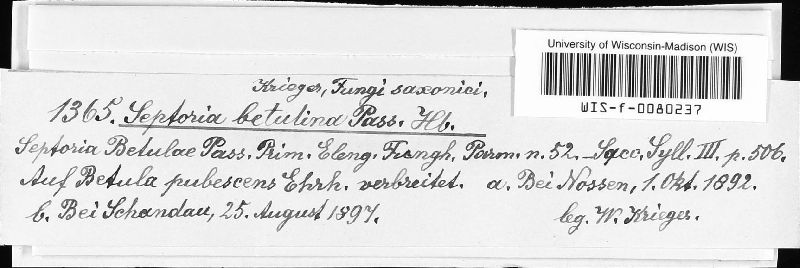 University of Wisconsin-Madison (WIS)
WIS-f-0080237
Krieger, Fungi saxonici.
1365. Septoria betulina Pass. Hb.
Septoria Betulae Pass. Prim. Eleng. Funghi Parm. n. 52. – Sacc. Syll. III. p. 506.
Auf Betula pubescens Ehrh. verbreitet. a. Bei Nossen, 1. Okt. 1892.
b. Bei Schandau, 25. August 1897. leg. W. Krieger.